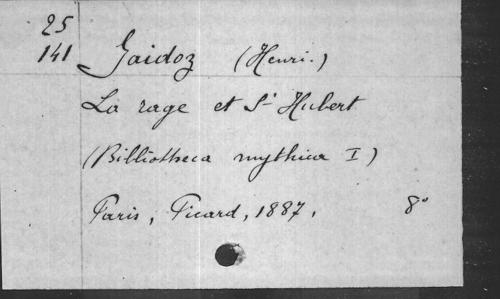 25
141 Gaidoz (Henri.)
La rage et St Hubert
(Bibliotheca mythica I)
Paris, Picard, 1887. 8°